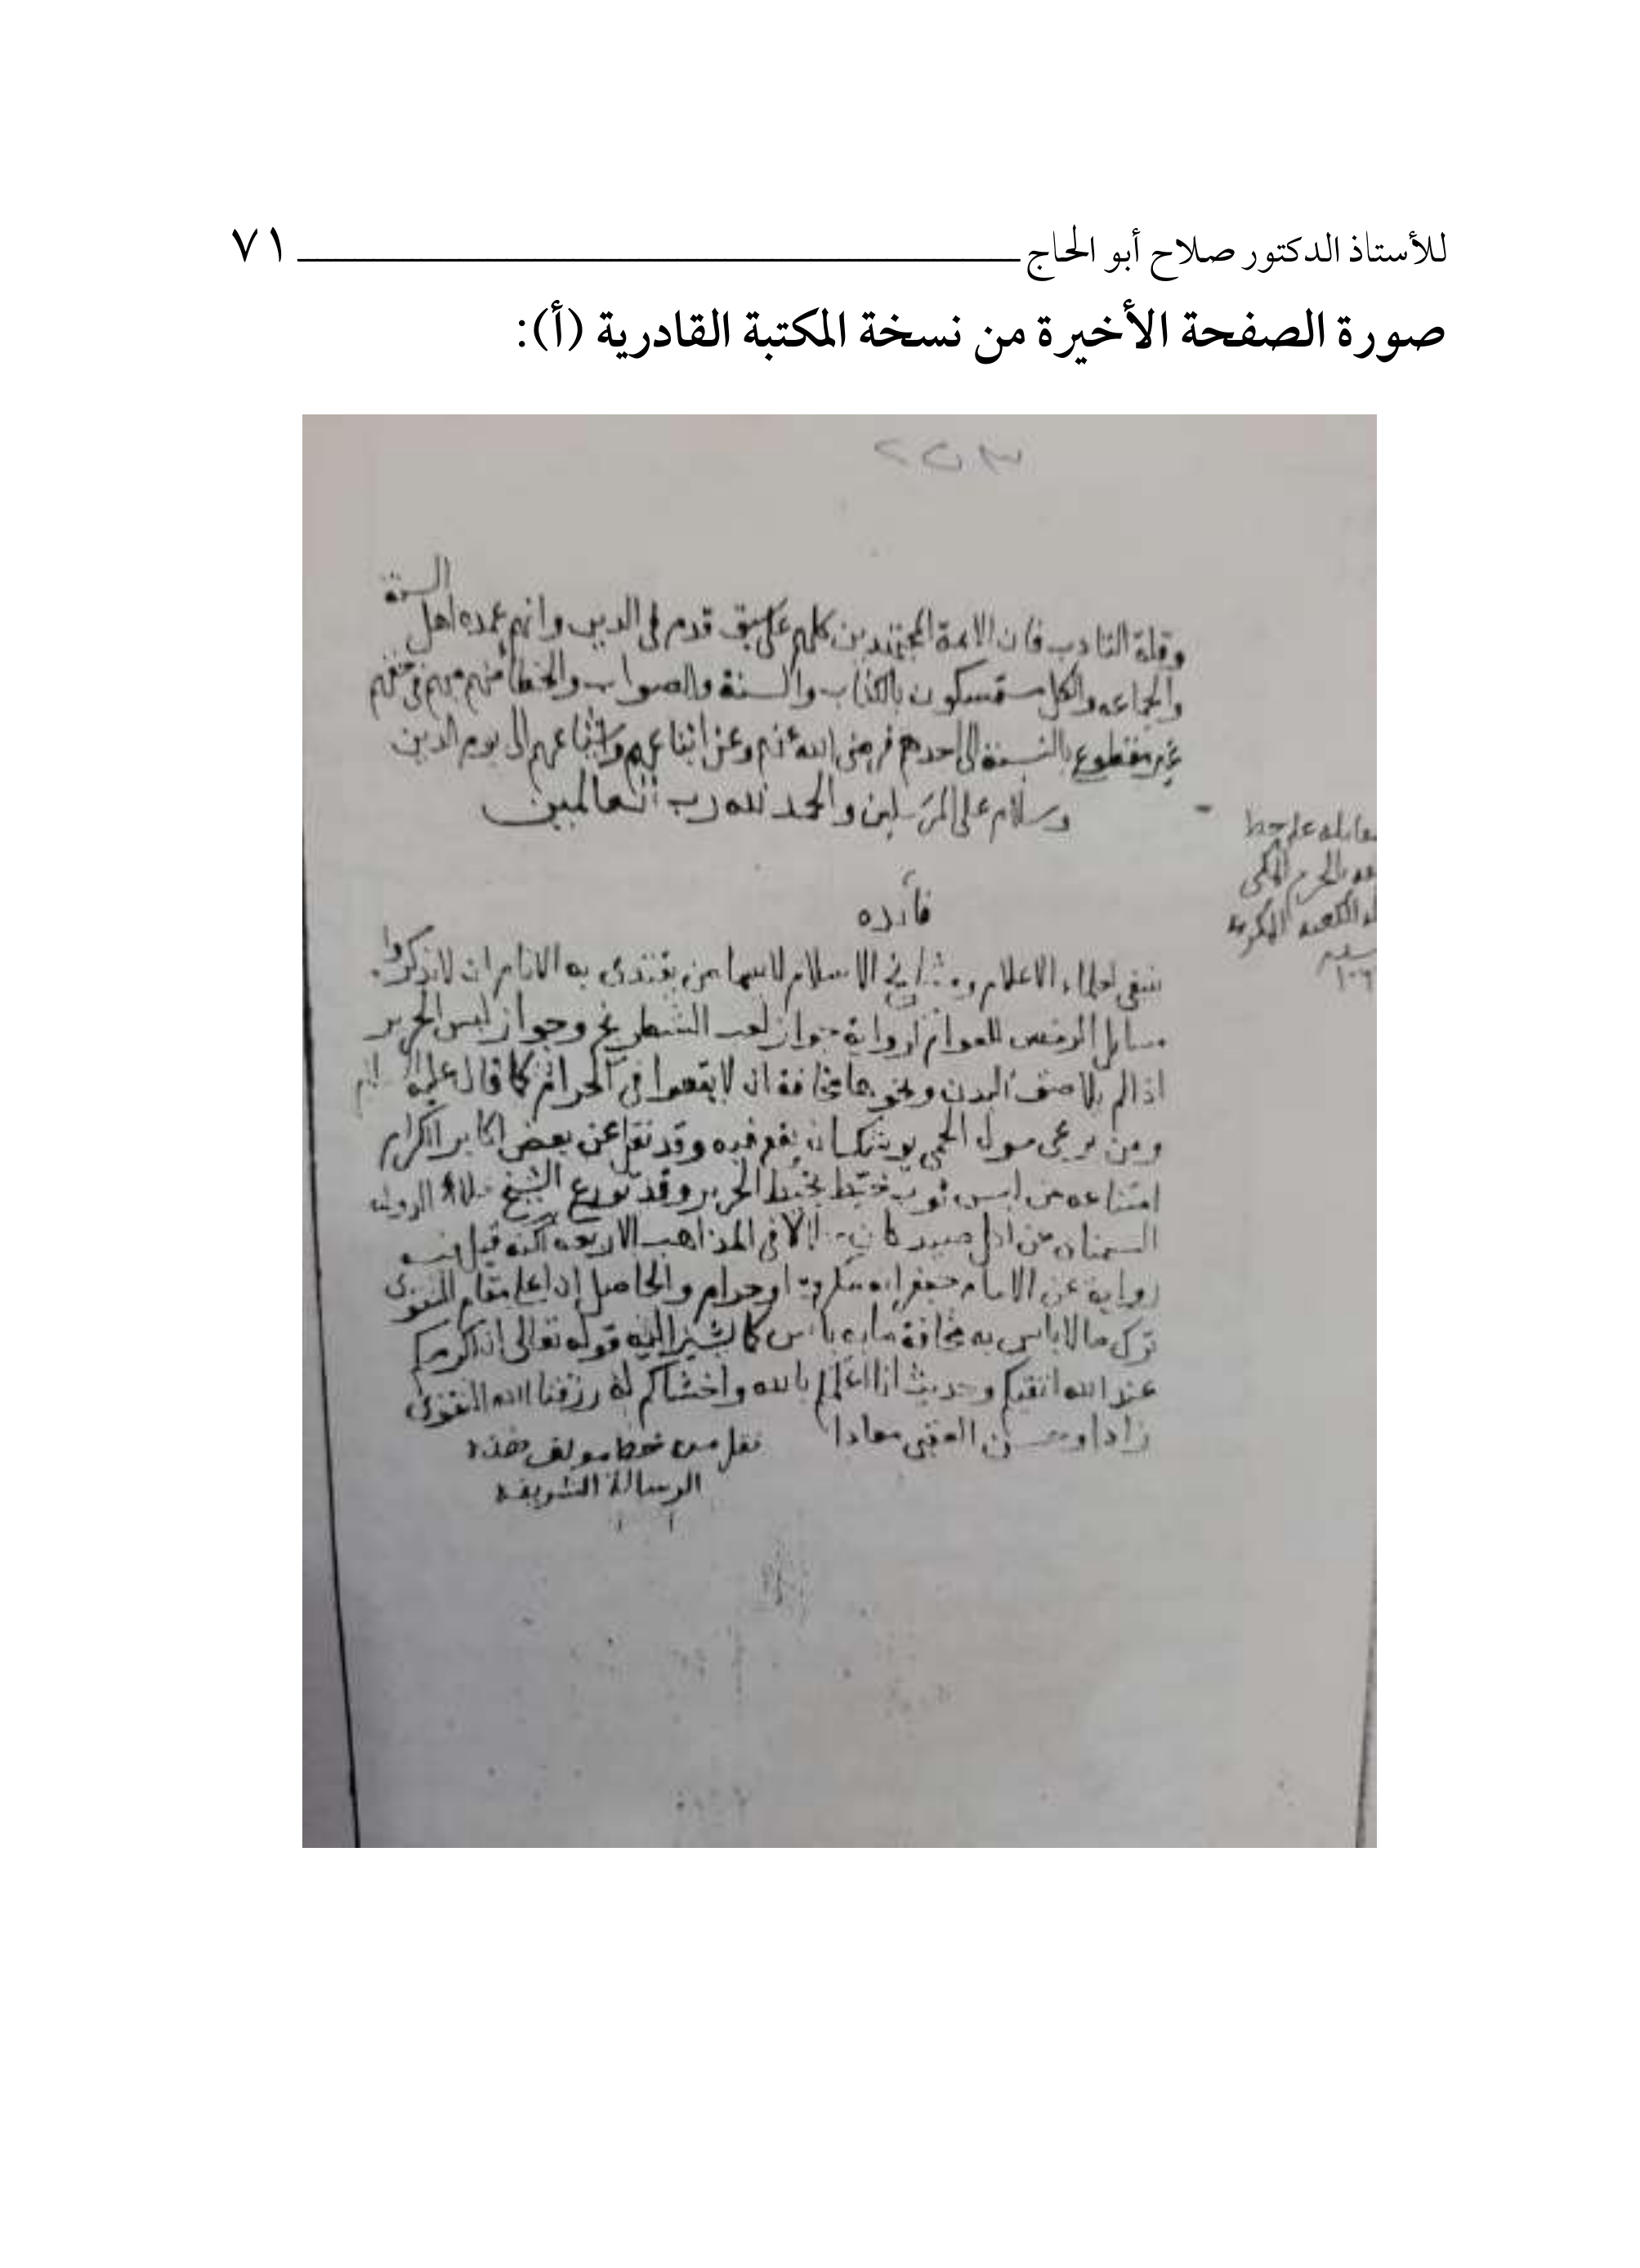 للأستاذ الدكتور صلاح أبو الحاج ٧١
صورة الصفحة الأخيرة من نسخة المكتبة القادرية (أ):
٢٥٣
وقلة التادب فان الائمة المجتهدين كلهم على سبق قدم في الدين وانهم عمده اهل السنة
والجماعه والكل متمسكون بالكتاب والسنة والصواب والخطأ منهم مبهم في حقهم
غير مقطوع بالنسبة الى احدهم فرضى الله عنهم وعن اتباعهم واتباعهم الى يوم الدين
وسلام على المرسلين والحمد لله رب العالمين
على خط
بالحرم المكي
الكعبه المكرمة
فائده
ينبغي لعلماء الاعلام ومشايخ الاسلام لاسيما من يقتدى به الانام ان لا يذكروا
مسايل الرخص للعوام لرواية جواز لعب الشطرنج وجواز لبس الحرير
اذا لم يلاصق البدن ونحوها مخافة ان لا يقعوا في الحرام كما قال عليه السلام
ومن يرعى حول الحمى يوشك ان يقع فيه وقد نقل عن بعض اكابر الكرام
امتناعه من لبس ثوب خيط بخيط الحرير وقد تورع الشيخ علاء الدوله
السمناني من اكل صيد كان حلالا في المذاهب الاربعه لكنه قيل فيه
رواية عن الامام جعفر انه مكروه او حرام والحاصل ان اعلى مقام التقوى
ترك ما لا باس به مخافة ما به باس كما يشير اليه قوله تعالى ان اكرمكم
عند الله اتقيكم وحديث انا اعلمكم بالله واخشاكم له رزقنا الله التقوى
زادا العقبى معادا نقل من خط مولف هذه
الرسالة الشريفة